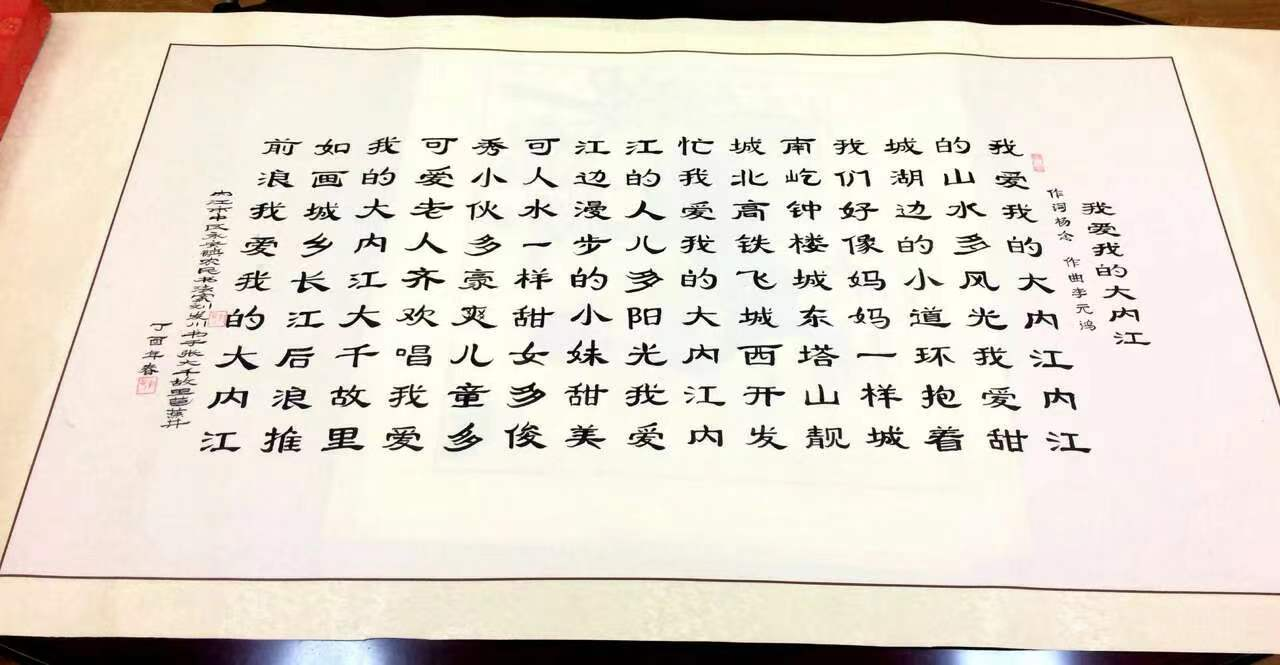 我爱我的大内江
作词杨念 作曲李元鸿
我爱我的大内江内江
的山水多风光我爱甜
城湖边的小道环抱着
我们好像妈妈一样城
南屹钟楼城东塔山靓
城北高铁飞城西开发
忙我爱我的大内江内
江的人儿多阳光我爱
江边漫步的小妹甜美
可人水一样甜女多俊
秀小伙多豪爽儿童多
可爱老人齐欢唱我爱
我的大内江大千故里
如画城乡长江后浪推
前浪我爱我的大内江
内江市中区永安镇农民书法家刘发川书于张大千故里芭蕉井
丁酉年春